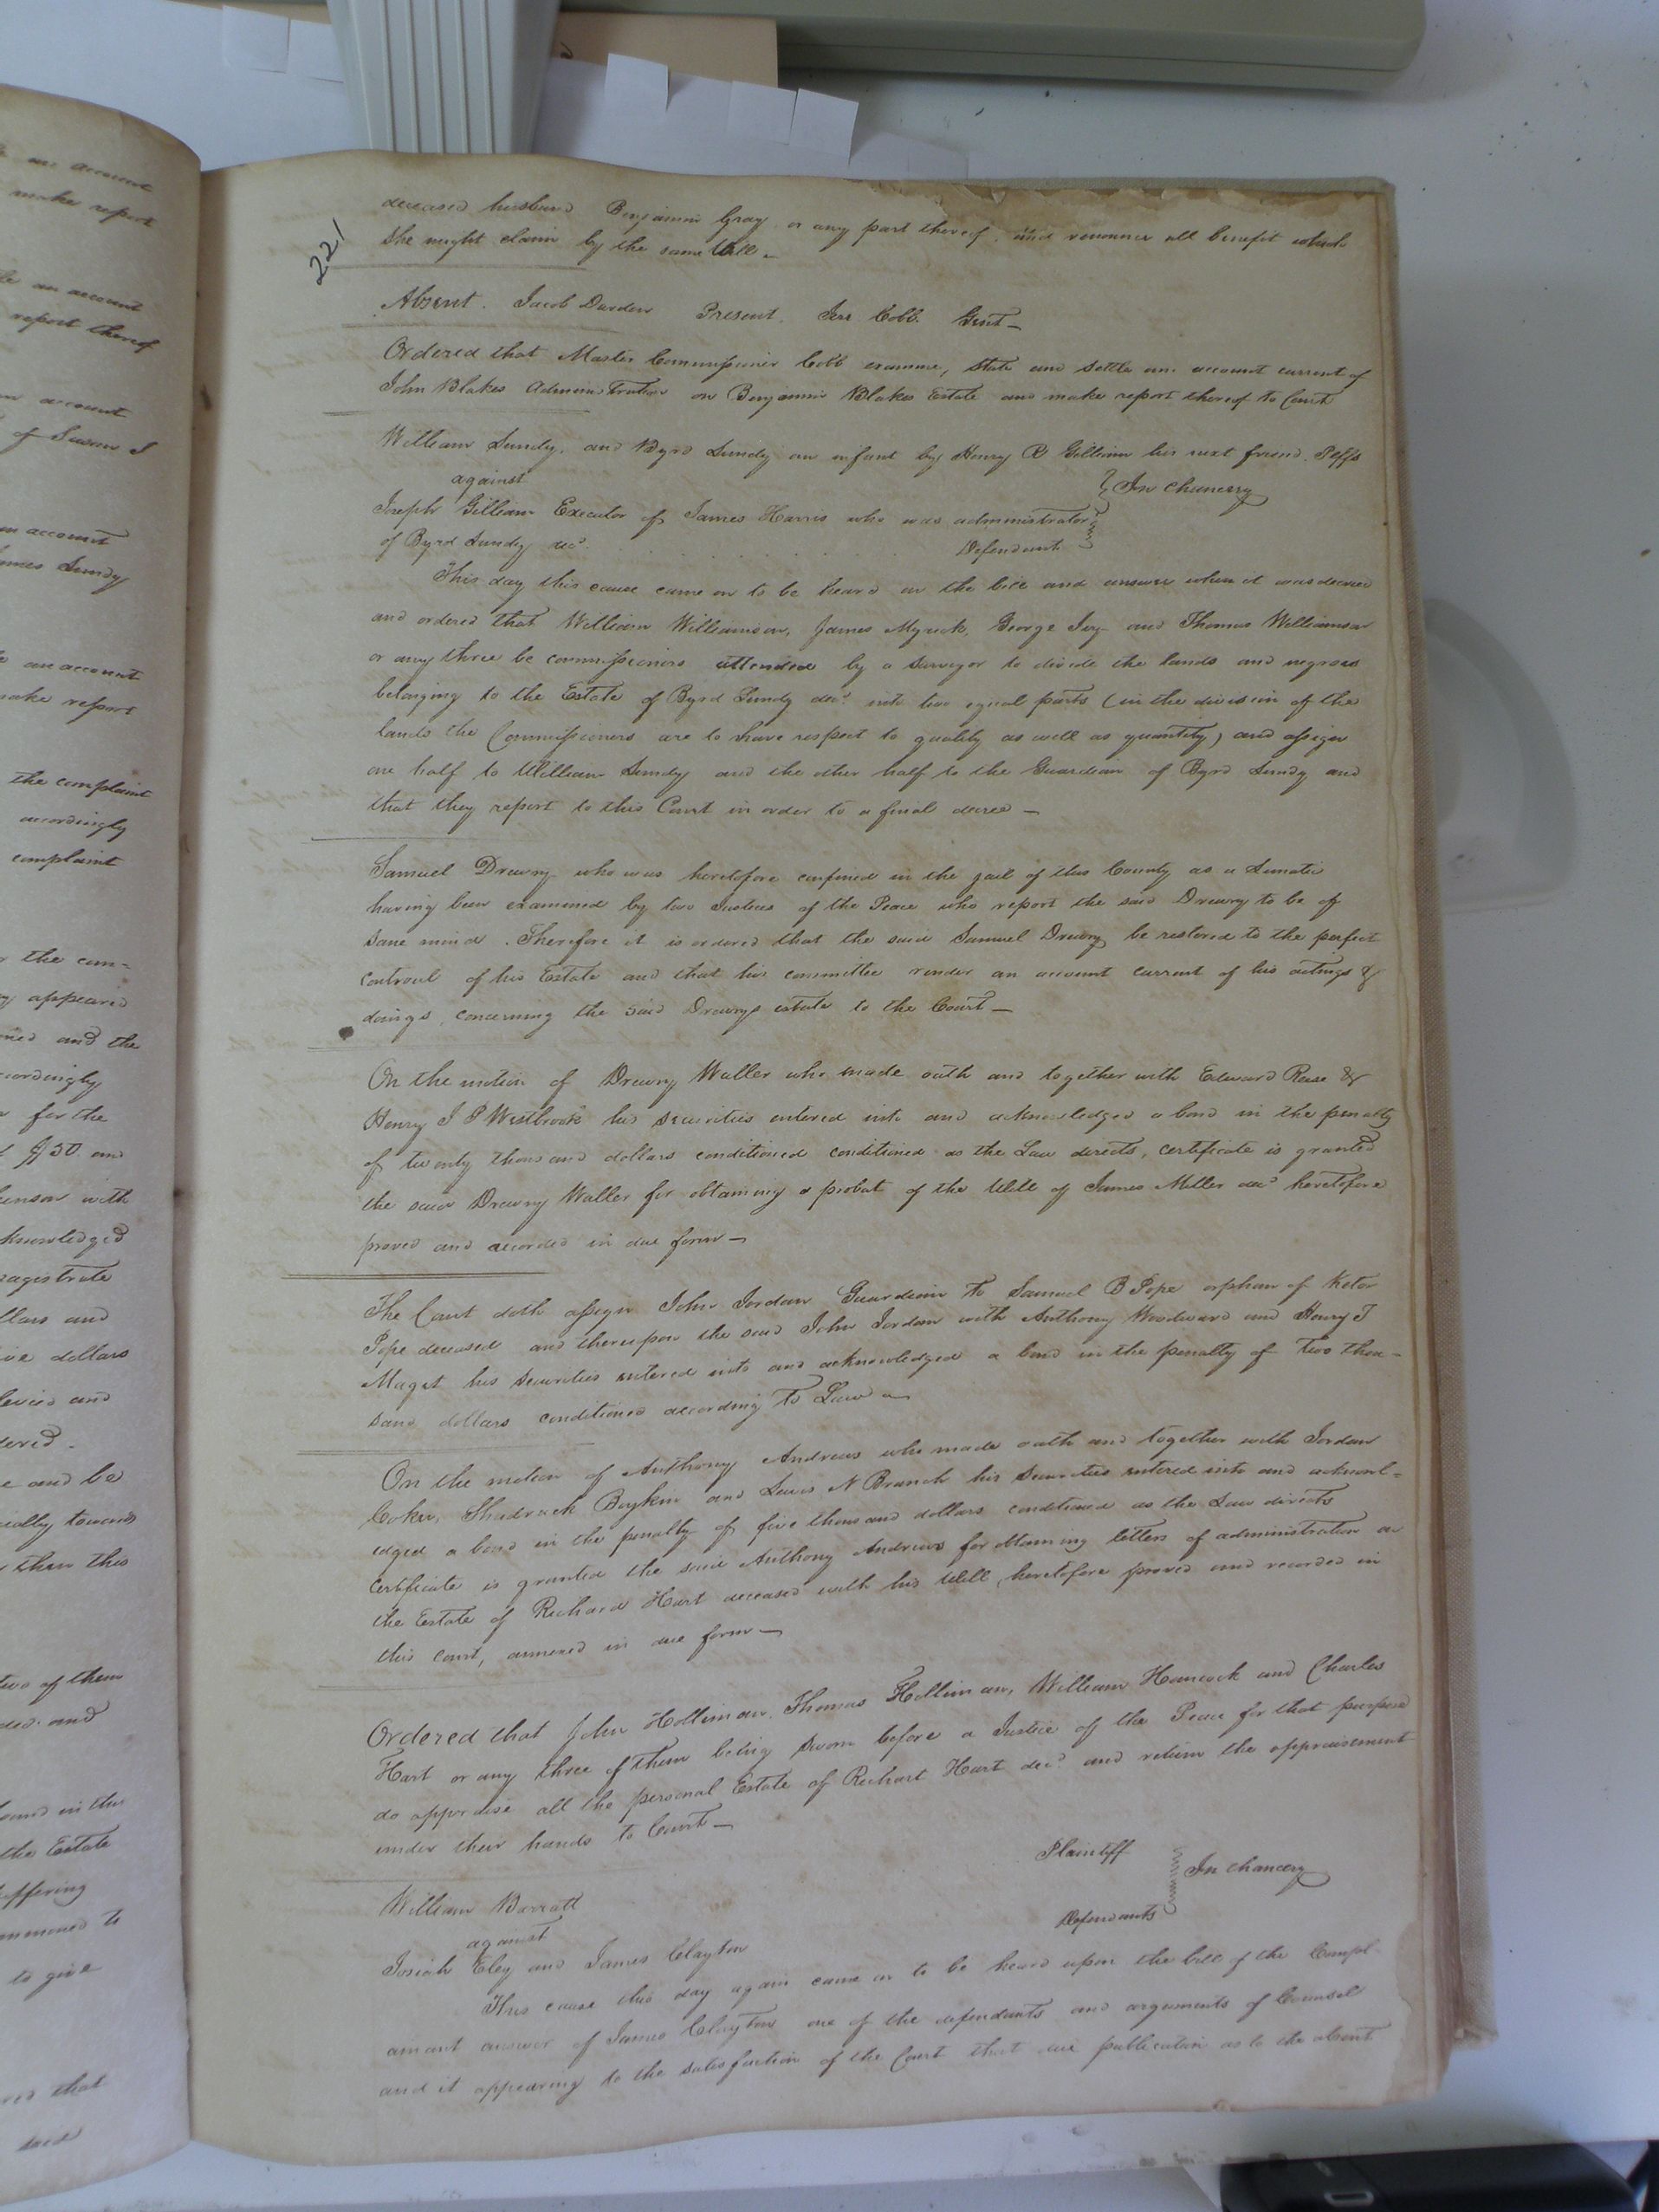 221
deceased husband Benjamin Gray or any part thereof, and renounce all benefit which
She might claim by the same Will
Absent. Jacob Darden Present. Jere Cobb. Gent
Ordered that Master Commissioner Cobb examine, State and Settle an account current of
John Blakes Administration on Benjamin Blakes Estate and make report thereof to Court
William Lundy, and Byrd Lundy an infant by Henry R Gilliam his next friend. Plffs
against
In Chancery
Joseph Gilliam Executor of James Harris who was administrator
of Byrd Lundy decd. Defendant
This day this cause came on to be heard on the bill and answer when it was decreed
and ordered that William Williamson, James Myrick, George Ivy and Thomas Williamson
or any three be commissioners attended by a Surveyor to divide the lands and negroes
belonging to the Estate of Byrd Lundy decd into two equal parts (in the division of the
lands the Commissioners are to have respect to quality as well as quantity) and assign
one half to William Lundy and the other half to the Guardian of Byrd Lundy and
that they report to this Court in order to a final decree
Samuel Drewry who was heretofore confined in the jail of this County as a Lunatic
having been examined by two Justices of the Peace who report the said Drewry to be of
Sane mind. Therefore it is ordered that the said Samuel Drewry be restored to the perfect
controul of his Estate and that his committee render an account current of his actings &
doings, concerning the said Drewrys estate to the Court
On the motion of Drewry Waller who made oath and together with Edward Rese &
Henry J P Westbrook his securities entered into and acknowledged a bond in the penalty
of twenty thousand dollars conditioned conditioned as the Law directs, certificate is granted
the said Drewry Waller for obtaining a probat of the Will of James Miller decd heretofore
proved and recorded in due form
The Court doth assign John Jordan Guardian to Samuel B Pope orphan of
Pope deceased and thereupon the said John Jordan with Anthony Woodward and Henry T
Maget his Securities entered into and acknowledged a bond in the penalty of two thou-
sand dollars conditioned according to Law
On the motion of Anthony Andrews who made oath and together with Jordan
Coker, Shadrack Boykin and Lewis N Branch his Securities entered into and acknowl-
edged a bond in the penalty of five thousand dollars conditioned as the Law directs
Certificate is granted the said Anthony Andrews for obtaining letters of administration on
the Estate of Richard Hart deceased with his Will, heretofore proved and recorded in
this Court, annexed in due form
Ordered that John Holliman, Thomas Holliman, William Hancock and Charles
Hart or any three of them being sworn before a Justice of the Peace for that purpose
do appraise all the personal Estate of Richart Hart decd and return the appraisement
under their hands to Court
William Barrott Plaintiff
against
In Chancery
Josiah Eley and James Clayton Defendants
This cause this day again came on to be heard upon the bill of the Compl
ainant answer of James Clayton one of the defendants and arguments of Counsel
and it appearing to the satisfaction of the Court that due publication as to the absent
an account
make report
an account
report thereof
account
of Susan S
an account
James Lundy
an account
make report
the complaint
accordingly
complaint
the com-
appeared
and the
accordingly
for the
$50 and
with
acknowledged
magistrate
dollars and
five dollars
levied and
and be
towards
than this
two of them
and
bound in the
the Estate
offering
summoned to
to give
that
said